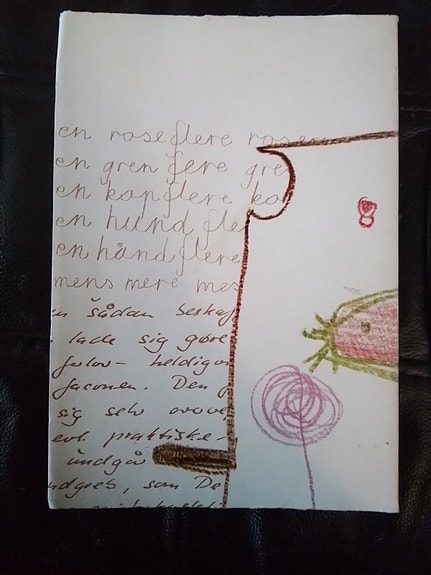 en rose flere rosen
en gren fere gre
en kop flere ko
en hund fle
en hånd flere
mens mere mes
en sådan beskaf
lade sig gøre
heldigv
faconen. Den
sig selv
praktiske-
undgå
ndgreb, som De